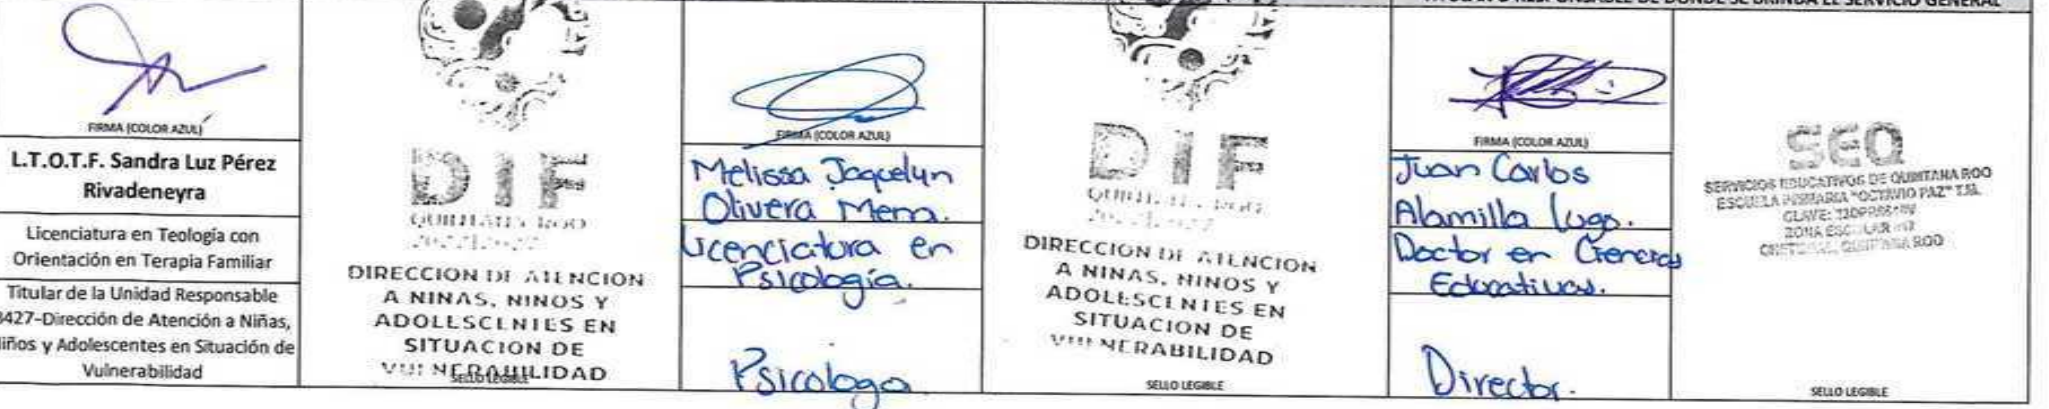 TITULAR O RESPONSABLE DE DONDE SE BRINDA EL SERVICIO GENERAL
FIRMA (COLOR AZUL)
L.T.O.T.F. Sandra Luz Pérez
Rivadeneyra
Licenciatura en Teología con
Orientación en Terapia Familiar
Titular de la Unidad Responsable
3427-Dirección de Atención a Niñas,
Niños y Adolescentes en Situación de
Vulnerabilidad
DIF
QUINTANA ROO
DIRECCION DE ATENCION
A NINAS, NINOS Y
ADOLESCENTES EN
SITUACION DE
VULNERABILIDAD
SELLO LEGIBLE
FIRMA (COLOR AZUL)
Melissa Jaquelyn
Olivera Mena.
Licenciatura en
Psicología.
Psicologa
DIF
QUINTANA ROO
DIRECCION DE ATENCION
A NINAS, NINOS Y
ADOLESCENTES EN
SITUACION DE
VULNERABILIDAD
SELLO LEGIBLE
FIRMA (COLOR AZUL)
Juan Carlos
Alamilla Lugo.
Doctor en Ciencias
Educativas.
Director.
SEQ
SERVICIOS EDUCATIVOS DE QUINTANA ROO
ESCUELA PRIMARIA "OCTAVIO PAZ" T.M.
CLAVE:
ZONA ESCOLAR
QUINTANA ROO
SELLO LEGIBLE